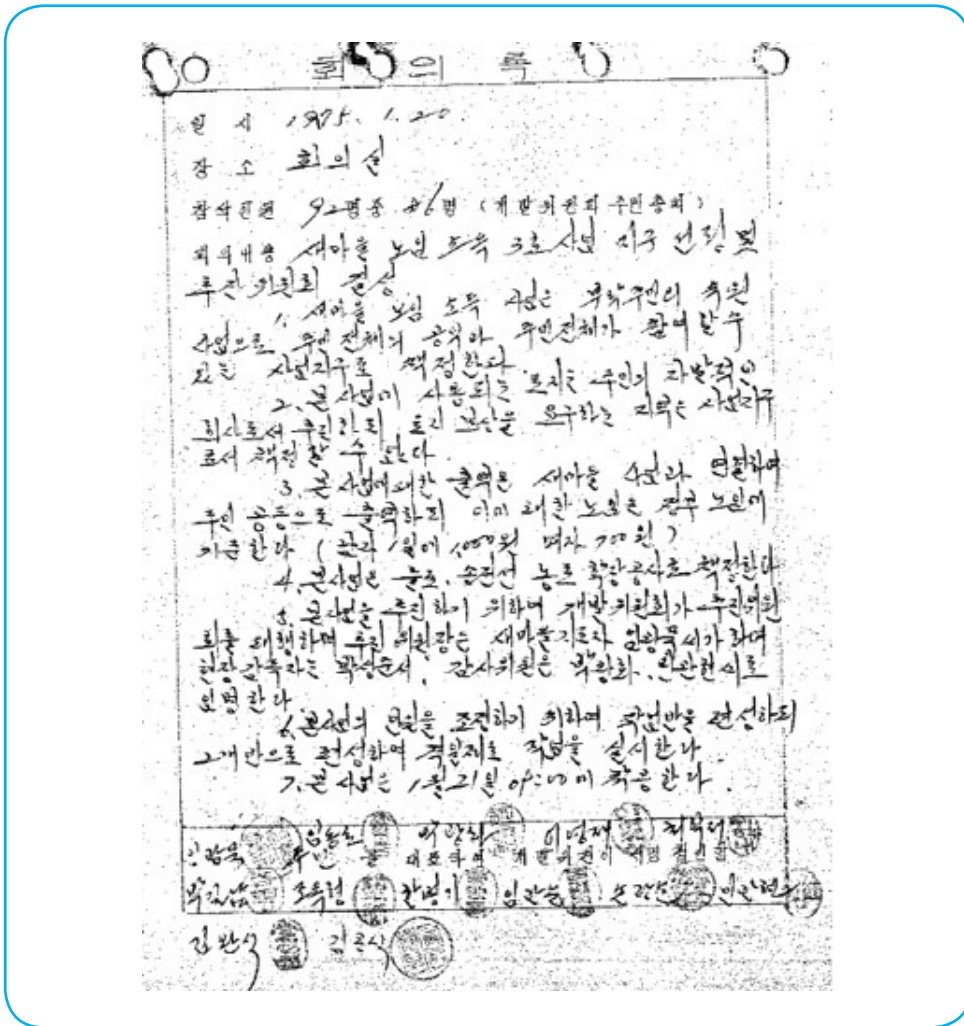 회의록
일시 1975. 1. 20.
장소 회의실
참석인원 92명중 86명 (개발위원회 주민총회)
회의내용 새마을 노임 소득 3호사업 지구 선정 및
추진위원회 결성
1. 새마을 노임 소득 사업은 부락주민의 숙원
사업으로 주민전체의 공익아 주민전체가 참여할수
있는 사업지구로 책정한다
2. 본사업에 사용되는 토지는 주민의 자발적인
희사로서 추진하되 토지 보상을 요구하는 지역은 사업지구
로서 책정 할 수 없다.
3. 본 사업에 대한 출역은 새마을 사업과 연결하여
주민 공동으로 출역하되 이에 대한 노임은 정부 노임에
기준한다 (남자 1일에 1,000원 여자 700원)
4. 본사업은 농로 확장공사로 책정한다
5. 본 사업을 추진하기 위하여 개발위원회가 추진위원
회를 대행하며 추진위원장은 새마을지도자 가 하며
현장감독자는 박상순씨, 감사위원은 씨로
임명한다.
6. 본사업의 인원을 조정하기 위하여 작업반을 편성하되
2개반으로 편성하여 격일제로 작업을 실시한다
7. 본 사업은 1월 21일 09:00에 착공한다.
박광희 이영재
주민을 대표하여 개발위원이 서명 날인함
조욱형
김판식